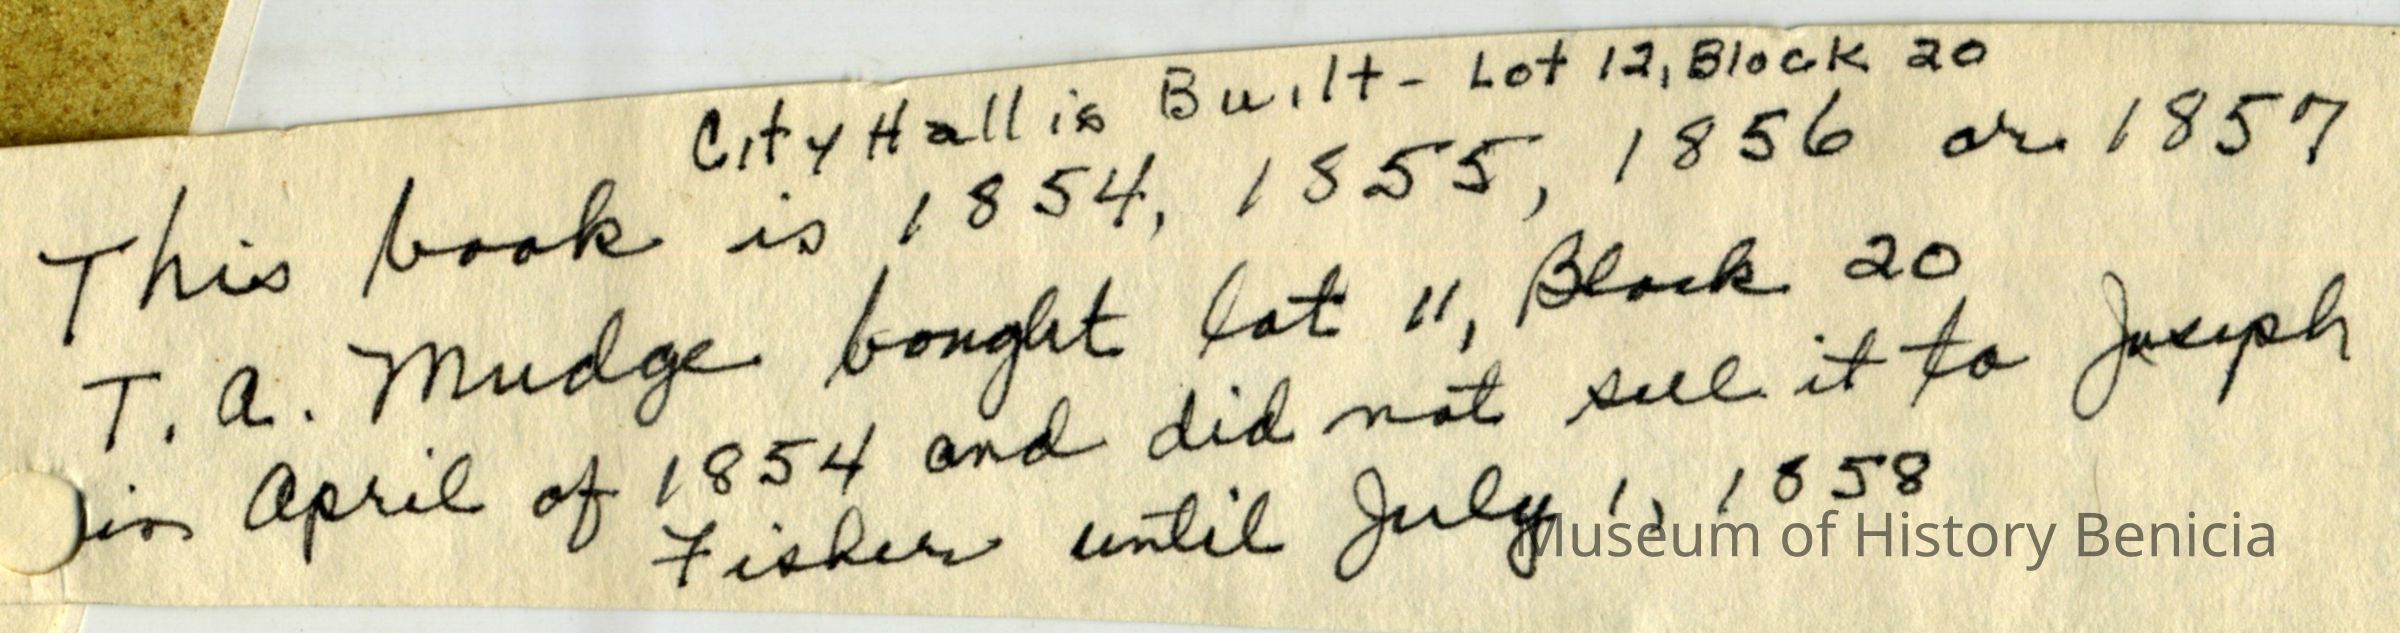 City Hall is Built - Lot 12, Block 20
This book is 1854, 1855, 1856 or 1857
T. A. Mudge bought lot 11, Block 20
in April of 1854 and did not sell it to Joseph
Fisher until July 1, 1858
Museum of History Benicia